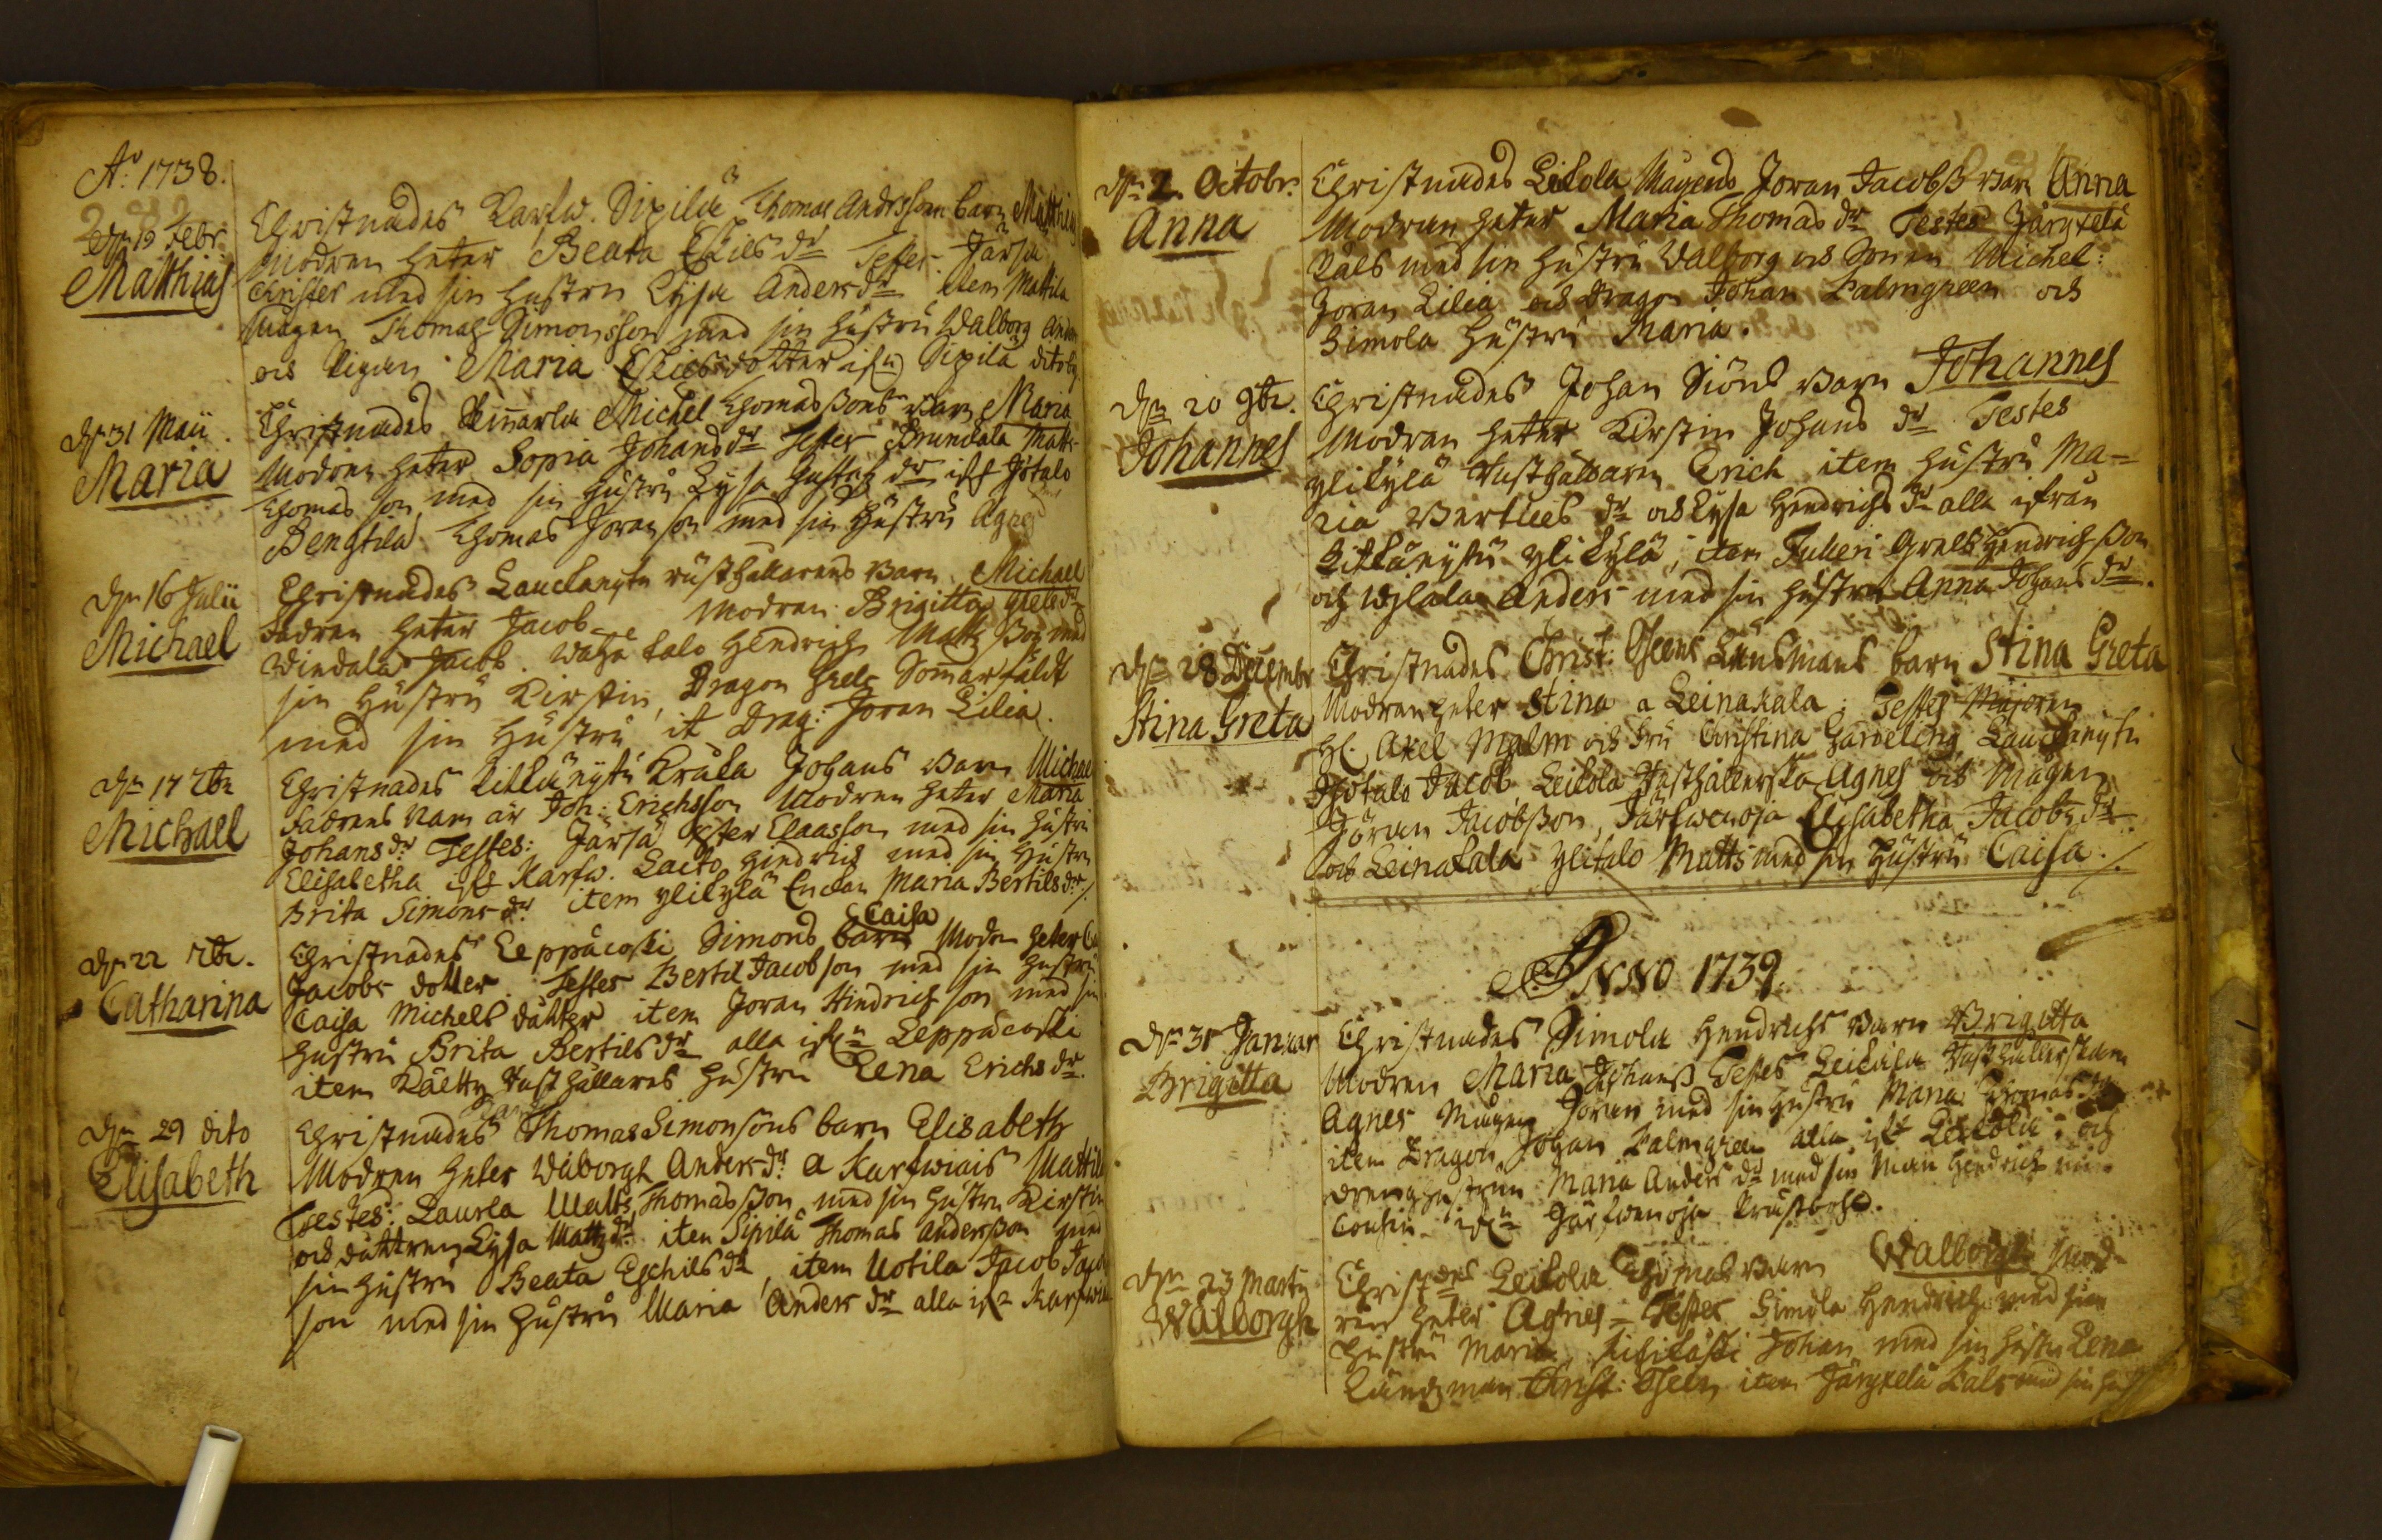 Ao. 1738.
Dn 19 Febr.
Matthias
Christnades Karfw. Sipilä Thomas Andrssons barn Matthias
Modren heter Beata Eskils dr Testes Järsä
Christer med sin hustru Lysa Anders dr item Mattila
Mågen Thomas Simonsson med sin hustru Walborg Anders
och Pigan Maria Eskilsdotter ifrn Sipilä ditoby
Dn 31 Maii.
Maria
Christnades Michel Thomassons barn Maria
Modren heter Sopia Johans dr Testes Brundala Matts
Thomasson med sin hustru Lysa Gustafs dr
Bengtila Thomas Joransson med sin hustru Agnes
Dn 16 Julii
Michael
Christnades Lauckanytu rusthållarens barn Michael
Fadren heter Jacob Modren Brigitta Grels dr
Windala Jacob. Waha talo Hendrich Matts son med
sin hustru Kirstin, Dragon Grels Sommarfäldt
med sin hustru it Drag: Joran Lilia.
Dn 17 7br
Michael
Christnades Kråka Johans barn Michael
Fadrens namn är Joh: Erichsson Modren heter Maria
Johans dr Testes: Järsä Claasson med sin hustru
Elisabetha Karfw. Laito Hindrich med sin hustru
Brita Simons dr item ylikylä Enckan Maria Bertils dr./.
Dn 22 7br.
Catharina
Christnades Leppäcoski Simons barn Caisa Modren heter
Jacobs dotter. Testes Bertil Jacobson med sin hustru
Caisa Michels dåtter item Joran Hindrichson med sin
hustru Brita Bertils dr alla ifrn Leppäcoski
item Rusthållares hustru Lena Erichs dr.
Dn 29 dito
Elisabeth
Christnades Thomas Simonsons barn Elisabeth
Modren heter Wålborgh Anders dr a Karfwiais Mattila
Testes: Laurla Matts Thomasson med sin hustru Kirstin
och dåttren Lysa Matts dr item Sipilä Thomas Andersson med
sin hustru Beata Eschils dr, item Uotila Jacob Jacob
son med sin hustru Maria Anders dr alla ifrn Karfwiais
Dn 2. Octobr.
Anna
Christnades Leikola Mågens Joran Jacobss barn Anna
Modren heter Maria Thomas dr Testes Järgkelä
Påls med sin hustru Walborg och Sonen Michel:
Joran Lilia och Dragon Johan Palmgreen och
Simola hustru Maria.
Dn 20 9br.
Johannes
Christnades Johan Siöns barn Johannes
Modren heter Kirstin Johans dr Testes
ylikylä Rusthållaren Erich item hustru Ma=
ria Bertils dr och Lysa Hendrichs dr alla ifrån
ylikylä, item Juheri Grels Hendrichsson
och Anders med sin hustru Anna Johans dr.
Dn 28 Decembr
Stina Greta
Christnades Christ: Länsmans barn Stina Greta
Modren heter Stina a Leinakala: Testes Majoren
H. Axel Malm och Fru Christina Lauckanytu
Jacob Leikola Rusthållerska Agnes och Mågen
Jöran Jacobsson, Järfwenoja Elisabetha Jacobs dr
och Leinakala ylitalo Matts med sin hustru Caisa./.
ANNO 1739.
Dn 31 Januar
Brigitta
Christnades Simola Hendrichs barn Brigitta
Modren Maria Johanss Testes Leikola Rusthållerskan
Agnes Mågen Joran med sin hustru Maria Thomas dr
item Dragon Johan Palmgreen alla Leikola: och
Maria Anders dr med sin Man Hendrich
ifrn Järfwenoja
Dn 23 Marty
Walborgh
Christdes Leikola Thomas barn Walborgh Mod-
ren heter Agnes = Testes Simola Hendrich med sin
hustru Maria, Johan med sin hustru Lena
Länsman Christ: item Järgkelä Påls med sin